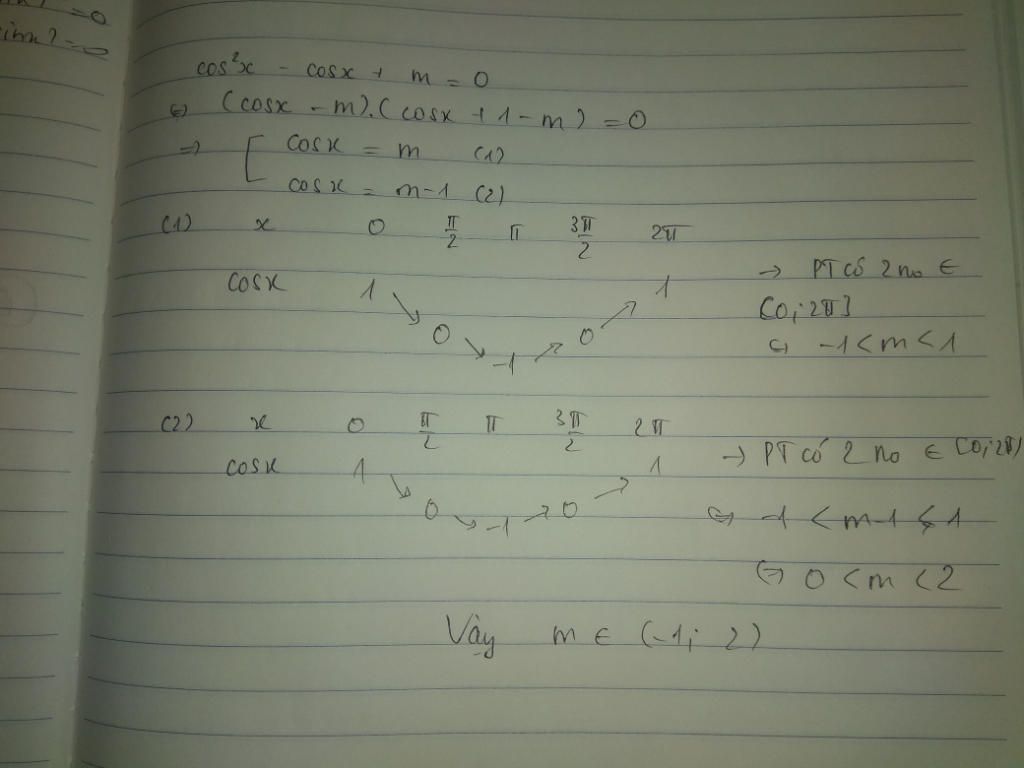 =0
sinx)=0
cos²x - cosx + m = 0
⇔ (cosx - m).(cosx + 1 - m) = 0
⇒ [ cosx = m (1)
cosx = m-1 (2)
(1) x 0 π/2 π 3π/2 2π
cosx 1 ↘ 0 ↘ -1 ↗ 0 ↗ 1
→ PT có 2 no ∈
[0; 2π]
⇔ -1 < m < 1
(2) x 0 π/2 π 3π/2 2π
cosx 1 ↘ 0 ↘ -1 ↗ 0 ↗ 1
→ PT có 2 no ∈ [0; 2π]
⇔ -1 < m-1 < 1
⇔ 0 < m < 2
Vậy m ∈ (-1; 2)